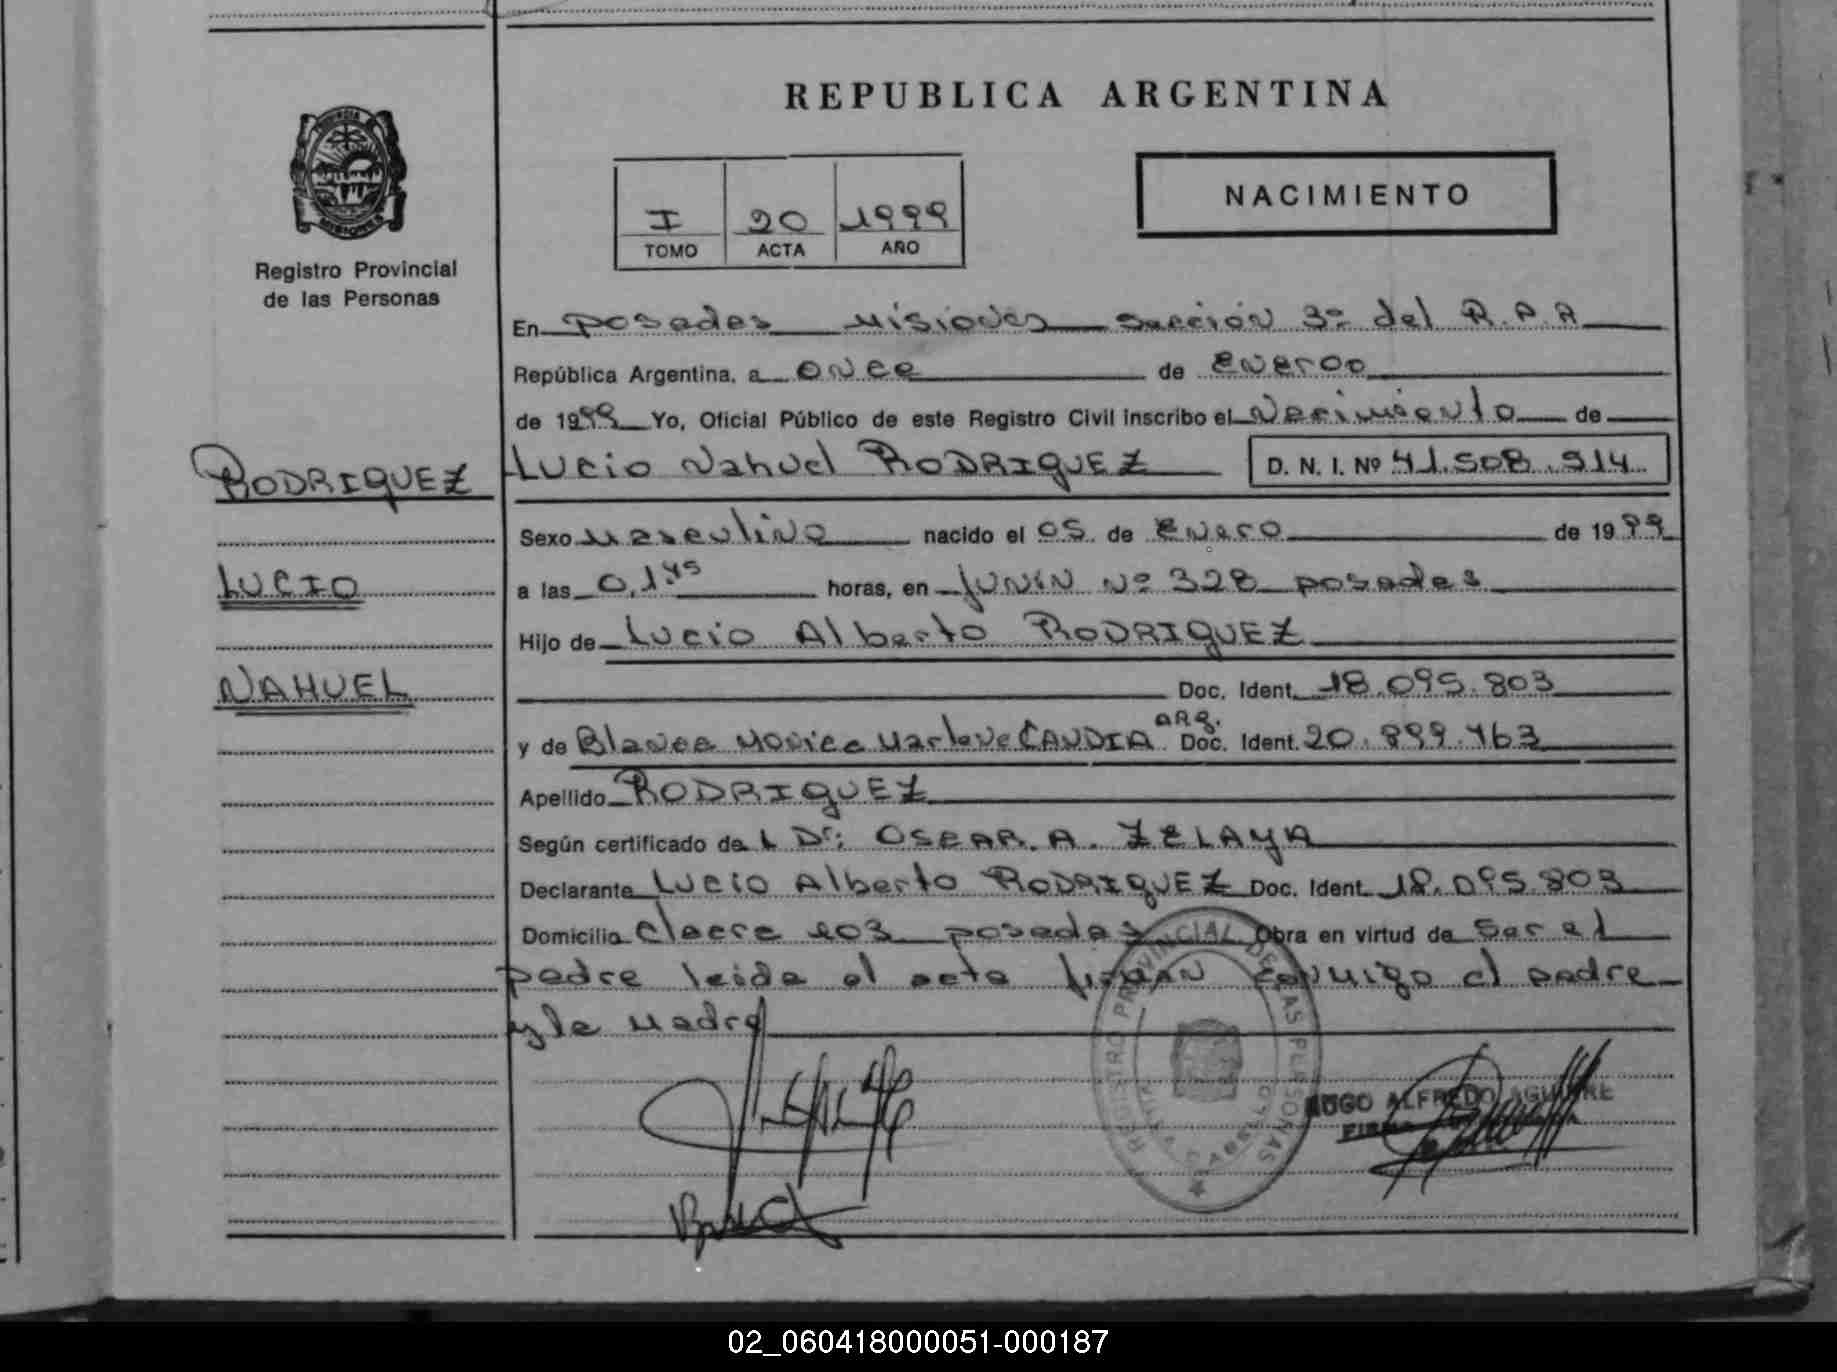 REPUBLICA ARGENTINA
NACIMIENTO
I 20 1999
TOMO ACTA AÑO
Registro Provincial
de las Personas
En Posadas Misiones Sección 3ª del R.P.P.
República Argentina, a once de Eneroo
de 1999 Yo, Oficial Público de este Registro Civil inscribo el Nacimiento de
RODRIGUEZ
Lucio Nahuel RODRIGUEZ D. N. I. Nº 41.508.914
Sexo Masculino nacido el 05 de Enero de 1999
LUCIO
a las 0,1:45 horas, en Junín Nº 328 posadas
Hijo de Lucio Alberto RODRIGUEZ
NAHUEL
Doc. Ident. 18.095.803
y de Blanca Monica Marlene CANDIA ARG. Doc. Ident. 20.899.463
Apellido RODRIGUEZ
Según certificado de L Dr: OSCAR. A. ZELAYA
Declarante Lucio Alberto RODRIGUEZ Doc. Ident. 18.095.803
Domicilio posadas Obra en virtud de Ser el
padre leida el acta firman conmigo el padre
y la Madre
REGISTRO PROVINCIAL DE LAS PERSONAS
HUGO ALFREDO AGUIRRE
02_060418000051-000187